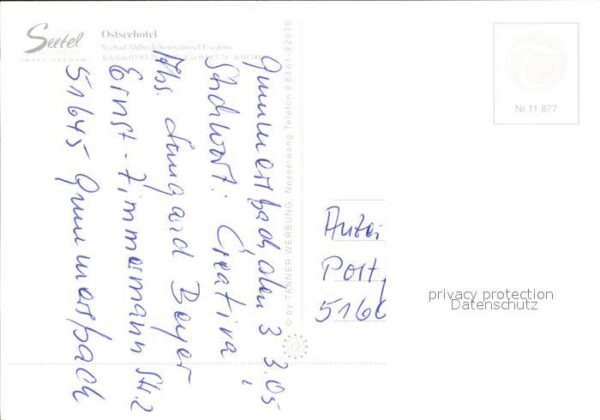 Seetel
Ostseehotel
Gummersbach, den 3.3.05
Stichwort: Creativa
Abs. Irmgard Beyer
Ernst-Zimmermann Str. 2
51645 Gummersbach
© by TANNER WERBUNG, Nesselwang, Telefon 08361-92070
Nr.11.877
Postf
516
privacy protection
Datenschutz